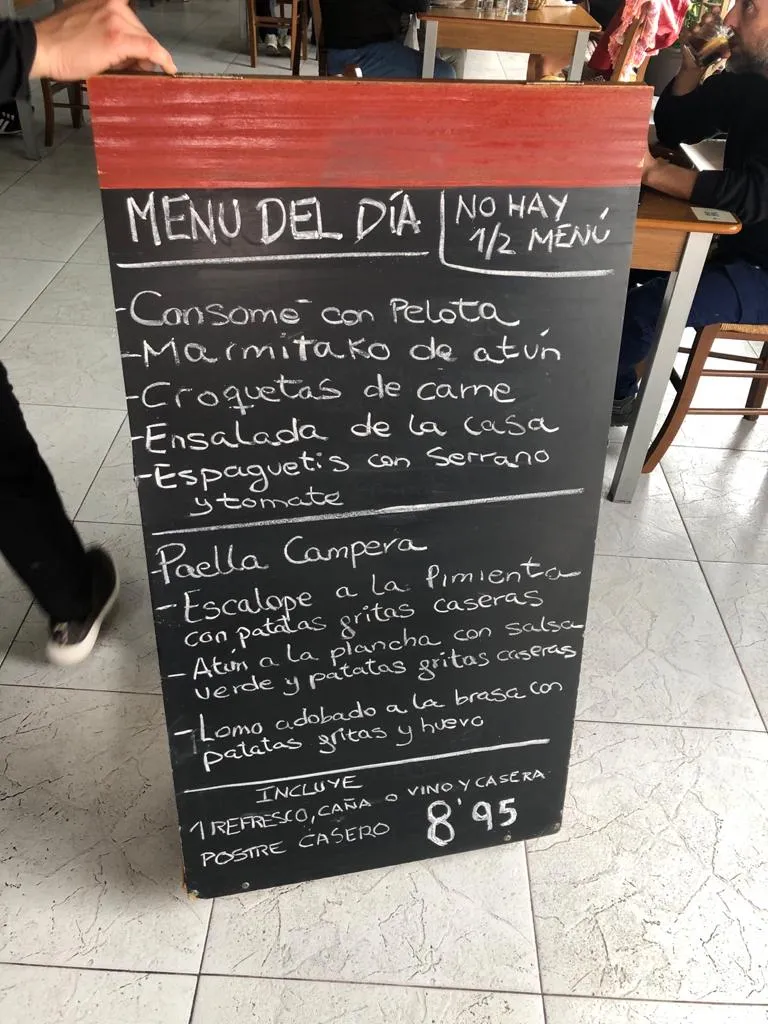 MENU DEL DÍA
NO HAY
1/2 MENÚ
-Consomé con Pelota
-Marmitako de atún
-Croquetas de carne
-Ensalada de la casa
-Espaguetis con Serrano
y tomate
Paella Campera
-Escalope a la Pimienta
con patatas gritas caseras
-Atún a la plancha con salsa
verde y patatas gritas caseras
-Lomo adobado a la brasa con
patatas gritas y huevo
INCLUYE
1 REFRESCO, CAÑA O VINO Y CASERA
POSTRE CASERO 8'95